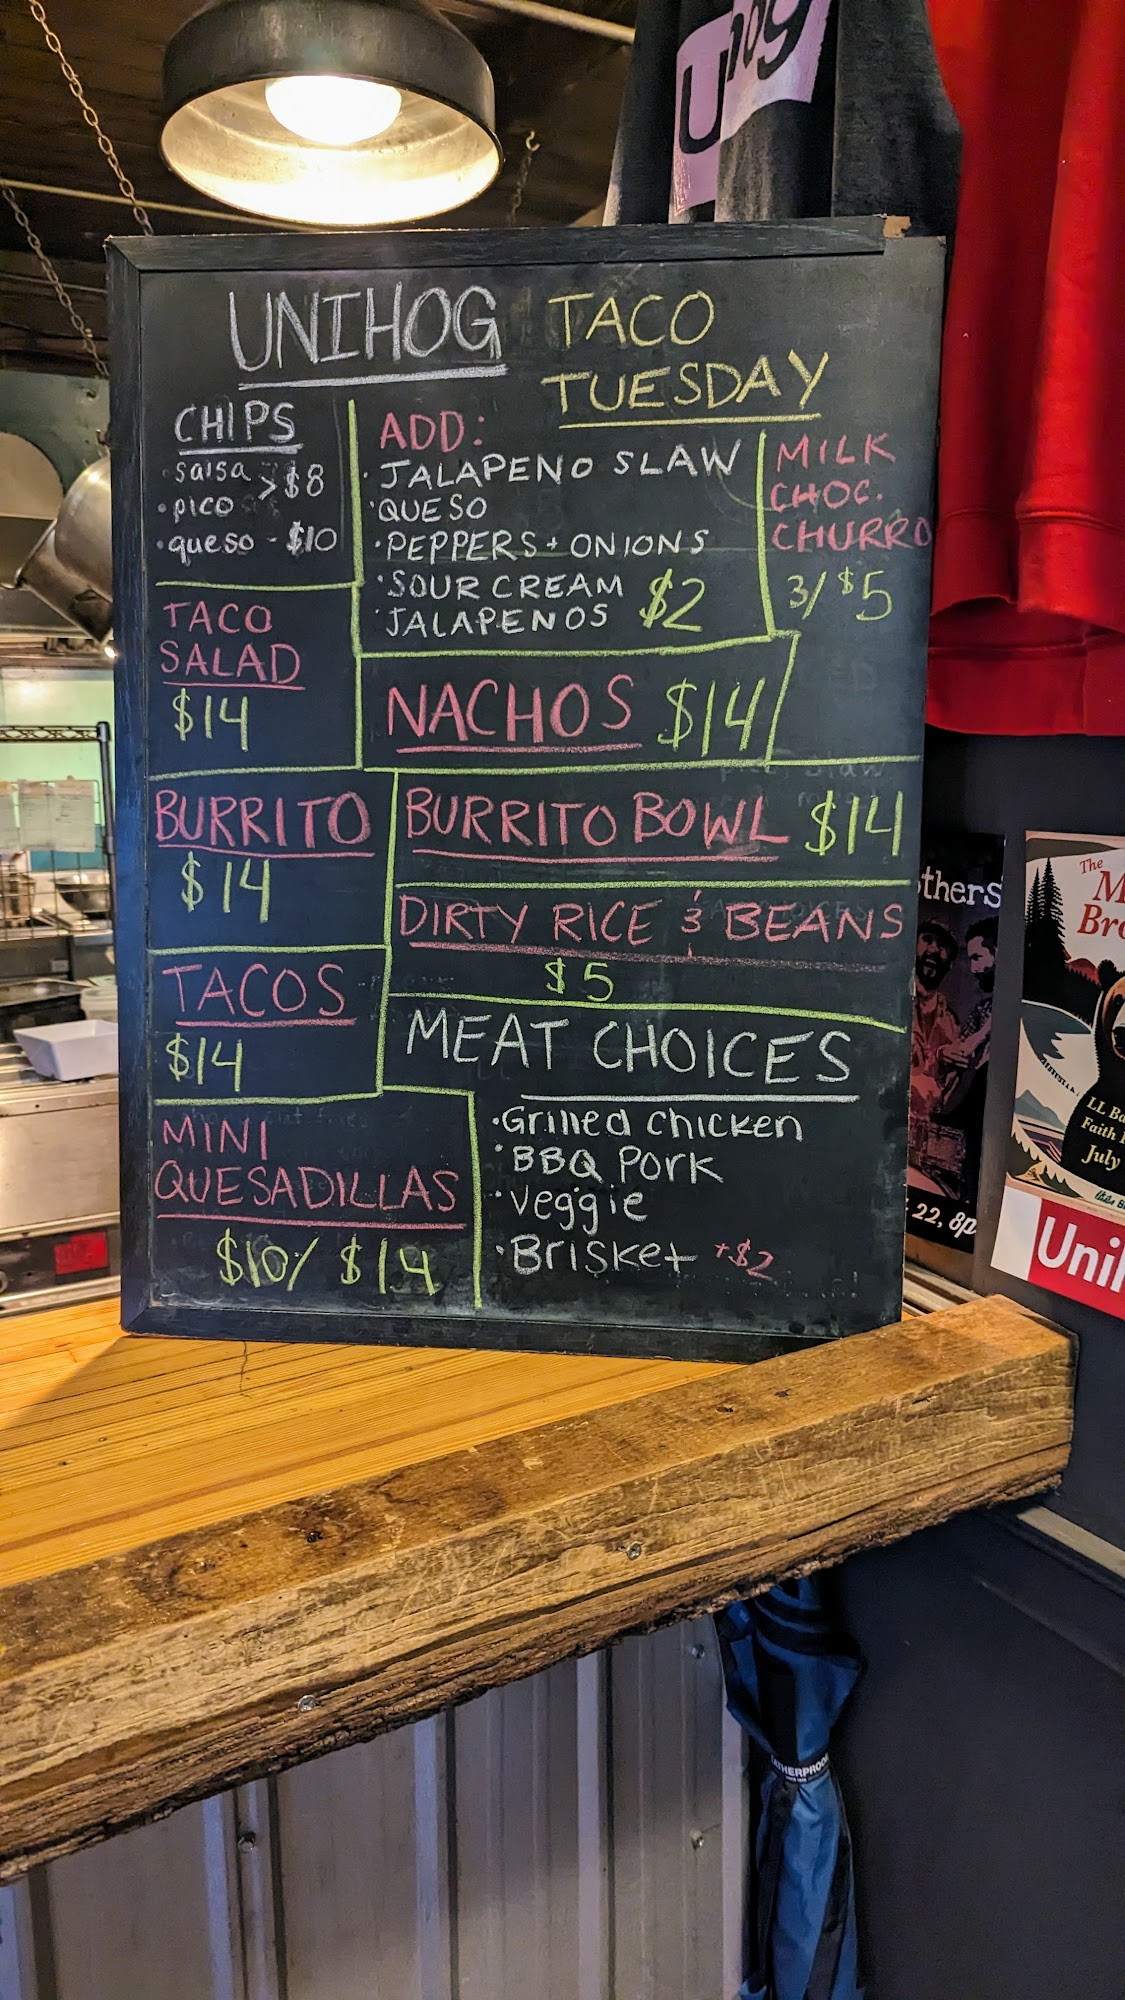 Unihog
UNIHOG TACO
TUESDAY
CHIPS
• salsa
• pico
>$8
• queso - $10
ADD:
• JALAPENO SLAW
• QUESO
• PEPPERS + ONIONS
• SOUR CREAM
• JALAPENOS
$2
MILK
CHOC.
CHURRO
3/$5
TACO
SALAD
$14
NACHOS $14
BURRITO
$14
BURRITO BOWL $14
DIRTY RICE & BEANS
$5
TACOS
$14
MEAT CHOICES
• Grilled chicken
• BBQ Pork
• veggie
• Brisket +$2
MINI
QUESADILLAS
$10/ $14
thers
22, 8p
The
M
Bro
LL Be
Faith
July
Unil